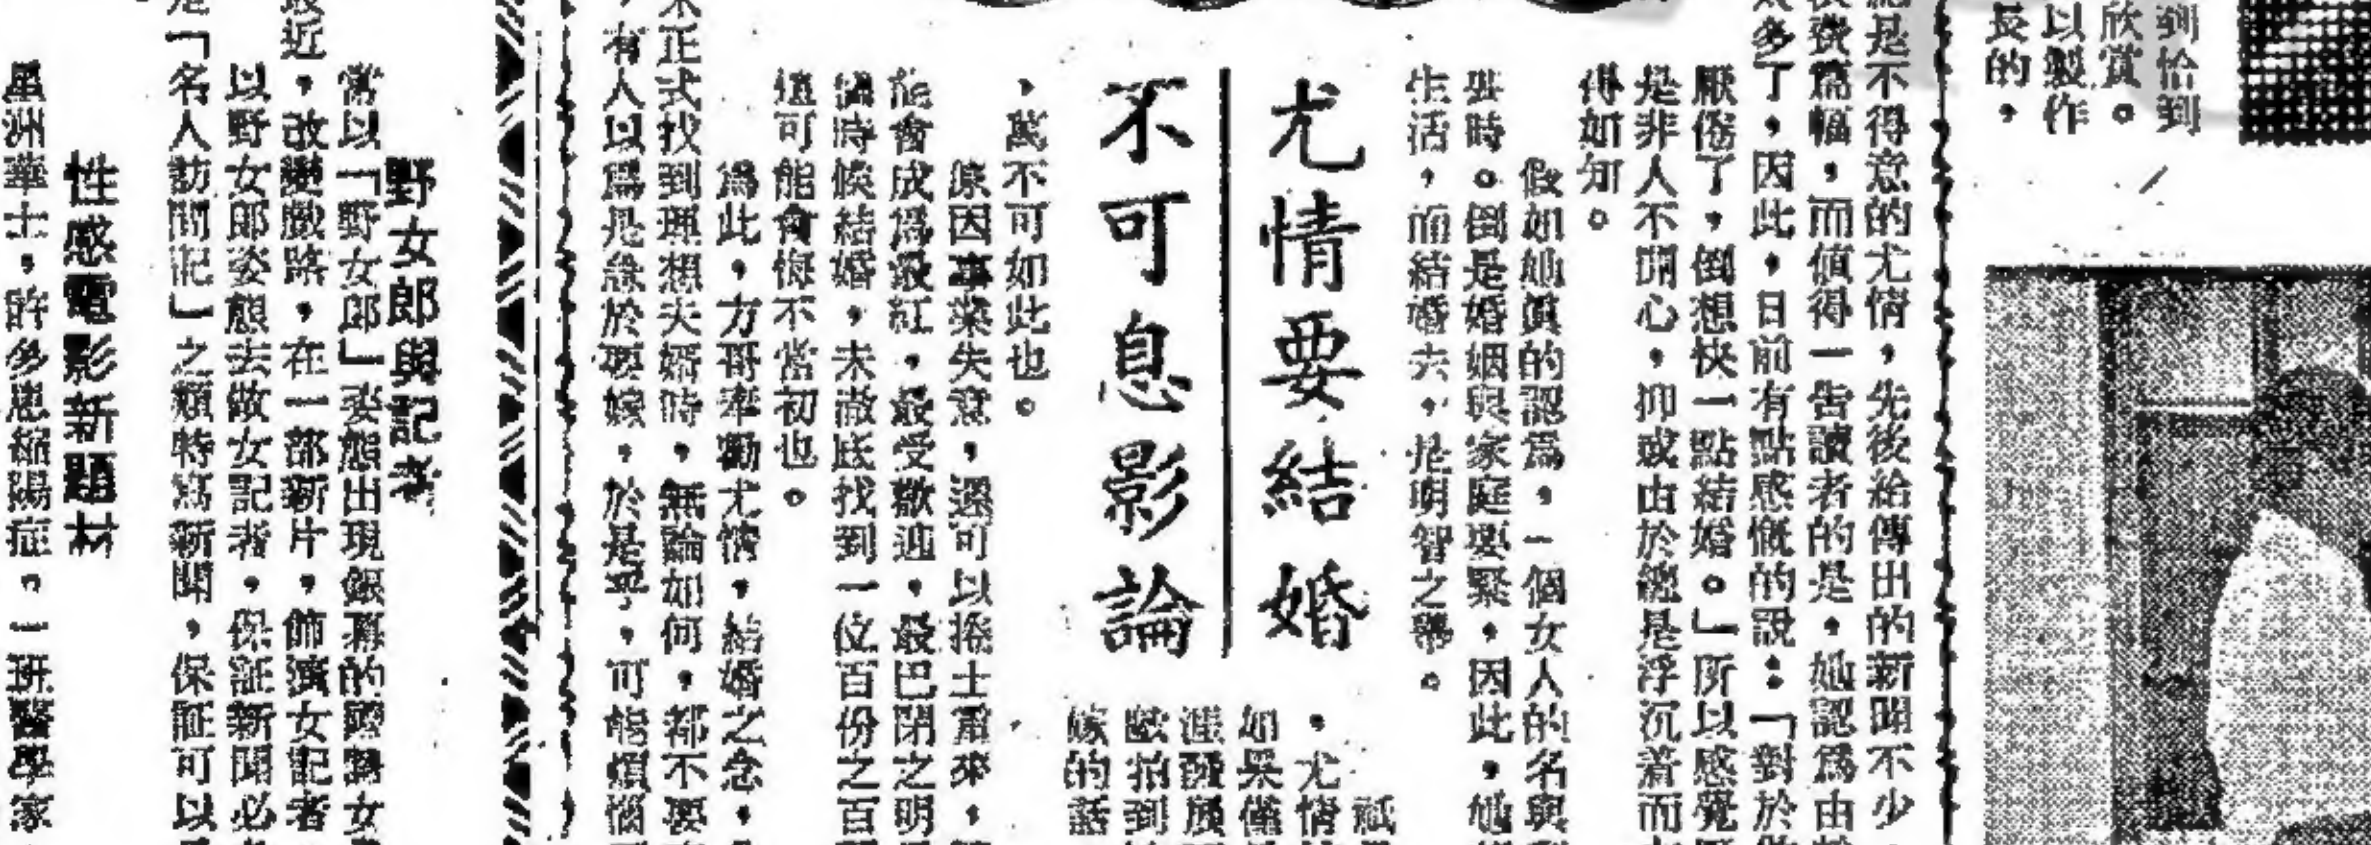 到恰到
欣賞。
以製作
長的，
是不得意的尤情，先後給傳出的新聞不少
費篇幅，而值得一告讀者的是，她認為由
多了，因此，日前有點感慨的說：「對於
厭倦了，倒想快一點結婚。」所以感覺
是非人不開心，抑或由於總是浮沉着而
得如知。
假如她真的認為，一個女人的名與
時。倒是婚姻與家庭要緊，因此，她
生活，而結婚去，是明智之舉。
尤情要結婚
不可息影論
祇
，尤情
如果僅
涯
拍到
嫁的話
，萬不可如此也。
原因事業失意，還可以捲土重來，
能會成為最紅，最受歡迎，最巴閉之明
時候結婚，未澈底找到一位百份之百
可能會悔不當初也。
為此，方哥奉勸尤情，結婚之念，
未正式找到理想夫婿時，無論如何，都不要
，有人以為是急於要嫁，於是乎，可能煩惱
野女郎與記者
常以「野女郎」姿態出現銀幕的 女
最近，改變戲路，在一部新片，飾演女記者
以野女郎姿態去做女記者，保証新聞必
是「名人訪問記」之類特寫新聞，保証可以
性感電影新題材
星洲華士，許多患縮陽症，一班醫學家